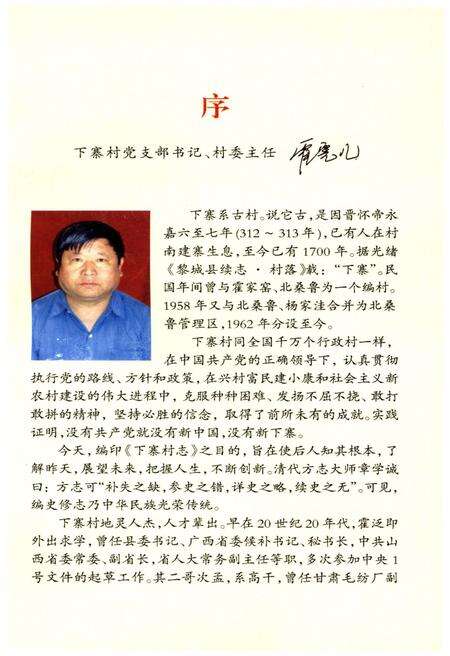 序
下寨村党支部书记、村委主任
下寨系古村。说它古,是因晋怀帝永
嘉六至七年(312～313年),已有人在村
南建寨生息,至今已有1700年。据光绪
《黎城县续志·村落》载:“下寨”。民
国年间曾与霍家窑、北桑鲁为一个编村。
1958年又与北桑鲁、杨家洼合并为北桑
鲁管理区,1962年分设至今。
下寨村同全国千万个行政村一样,
在中国共产党的正确领导下,认真贯彻
执行党的路线、方针和政策,在兴村富民建小康和社会主义新
农村建设的伟大进程中,克服种种困难、发扬不屈不挠、敢打
敢拼的精神,坚持必胜的信念,取得了前所未有的成就。实践
证明,没有共产党就没有新中国,没有新下寨。
今天,编印《下寨村志》之目的,旨在使后人知其根本,了
解昨天,展望未来,把握人生,不断创新。清代方志大师章学诚
曰:方志可“补失之缺,参史之错,详史之略,续史之无”。可见,
编史修志乃中华民族光荣传统。
下寨村地灵人杰,人才辈出。早在20世纪20年代,霍泛即
外出求学,曾任县委书记、广西省委候补书记、秘书长,中共山
西省委常委、副省长,省人大常务副主任等职,多次参加中央1
号文件的起草工作。其二哥次孟,系高干,曾任甘肃毛纺厂副